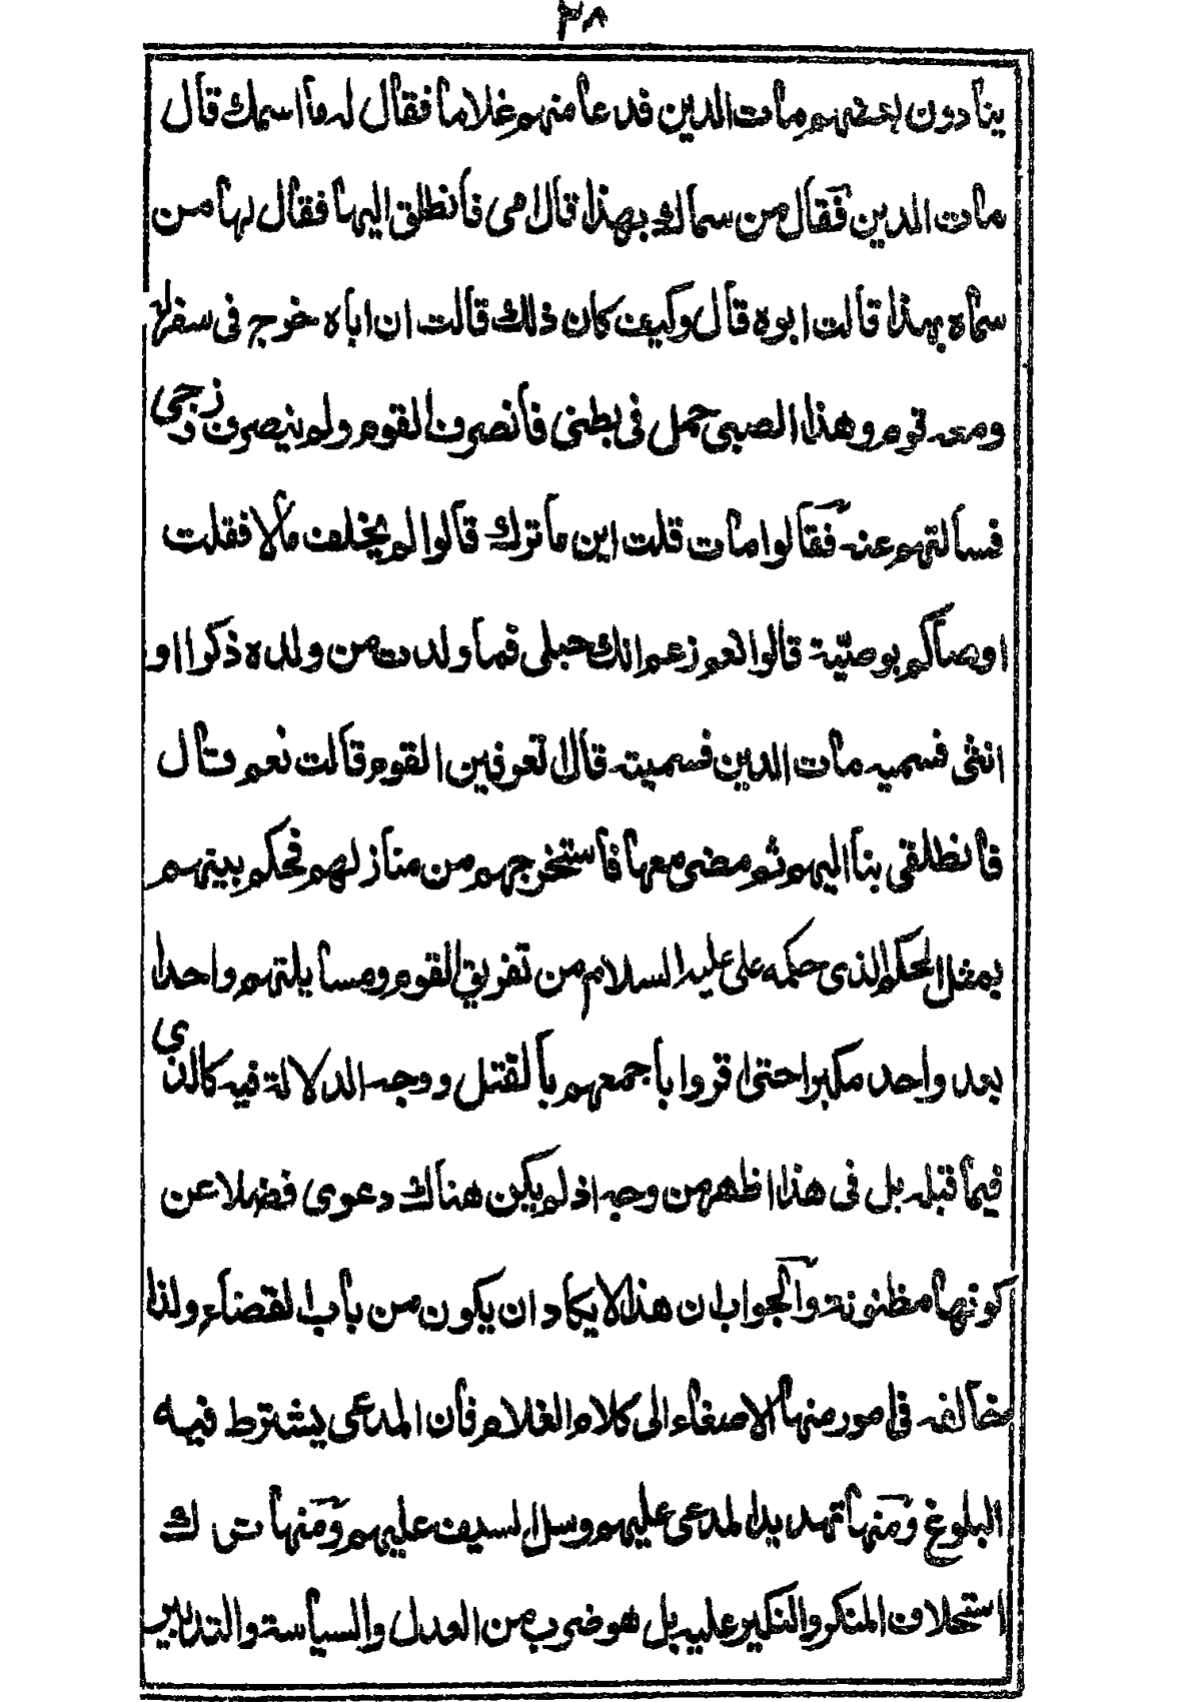 ٣٨
ينادون بعضهم مات الدين فدعا منهم غلاما فقال له ما اسمك قال
مات الدين فقال من سماك بهذا قال امى فانطلق اليها فقال لها من
سماه بهذا قالت ابوه قال وكيف كان ذلك قالت ان اباه خرج فى سفر لها
ومعه قوم وهذا الصبى حمل فى بطنى فانصرف القوم ولم ينصرف زوجى
فسالتهم عنه فقالوا مات قلت اين ما ترك قالوا لم يخلف مالا فقلت
اوصاكم بوصيّة قالوا نعم زعم انك حبلى فما ولدت من ولده ذكرا او
انثى فسميه مات الدين فسميته قال اتعرفين القوم قالت نعم قال
فانطلقى بنا اليهم ثم مضى معها فاستخرجهم من منازلهم فحكم بينهم
بمثل الحكم الذى حكمه على عليه السلام من تفريق القوم ومسايلتهم واحدا
بعد واحد مكبرا حتى اقروا باجمعهم بالقتل ووجه الدلالة فيه كالذي
فيما قبله بل فى هذا اظهر من وجه اذ لم يكن هناك دعوى فضلا عن
كونها مظنونة والجواب ان هذا لا يكاد ان يكون من باب القضاء ولذا
خالفه فى امور منها الاصغاء الى كلام الغلام فان المدعى يشترط فيه
البلوغ ومنها تهديد المدعى عليهم وسل السيف عليهم ومنها ترك
استحلاف المنكر والنكير عليه بل هو ضرب من العدل والسياسة والتدابير